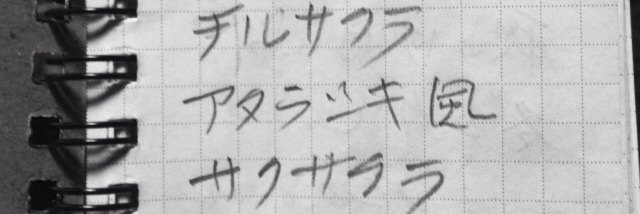 チルサクラ
アタラシキ風
サクサクラ